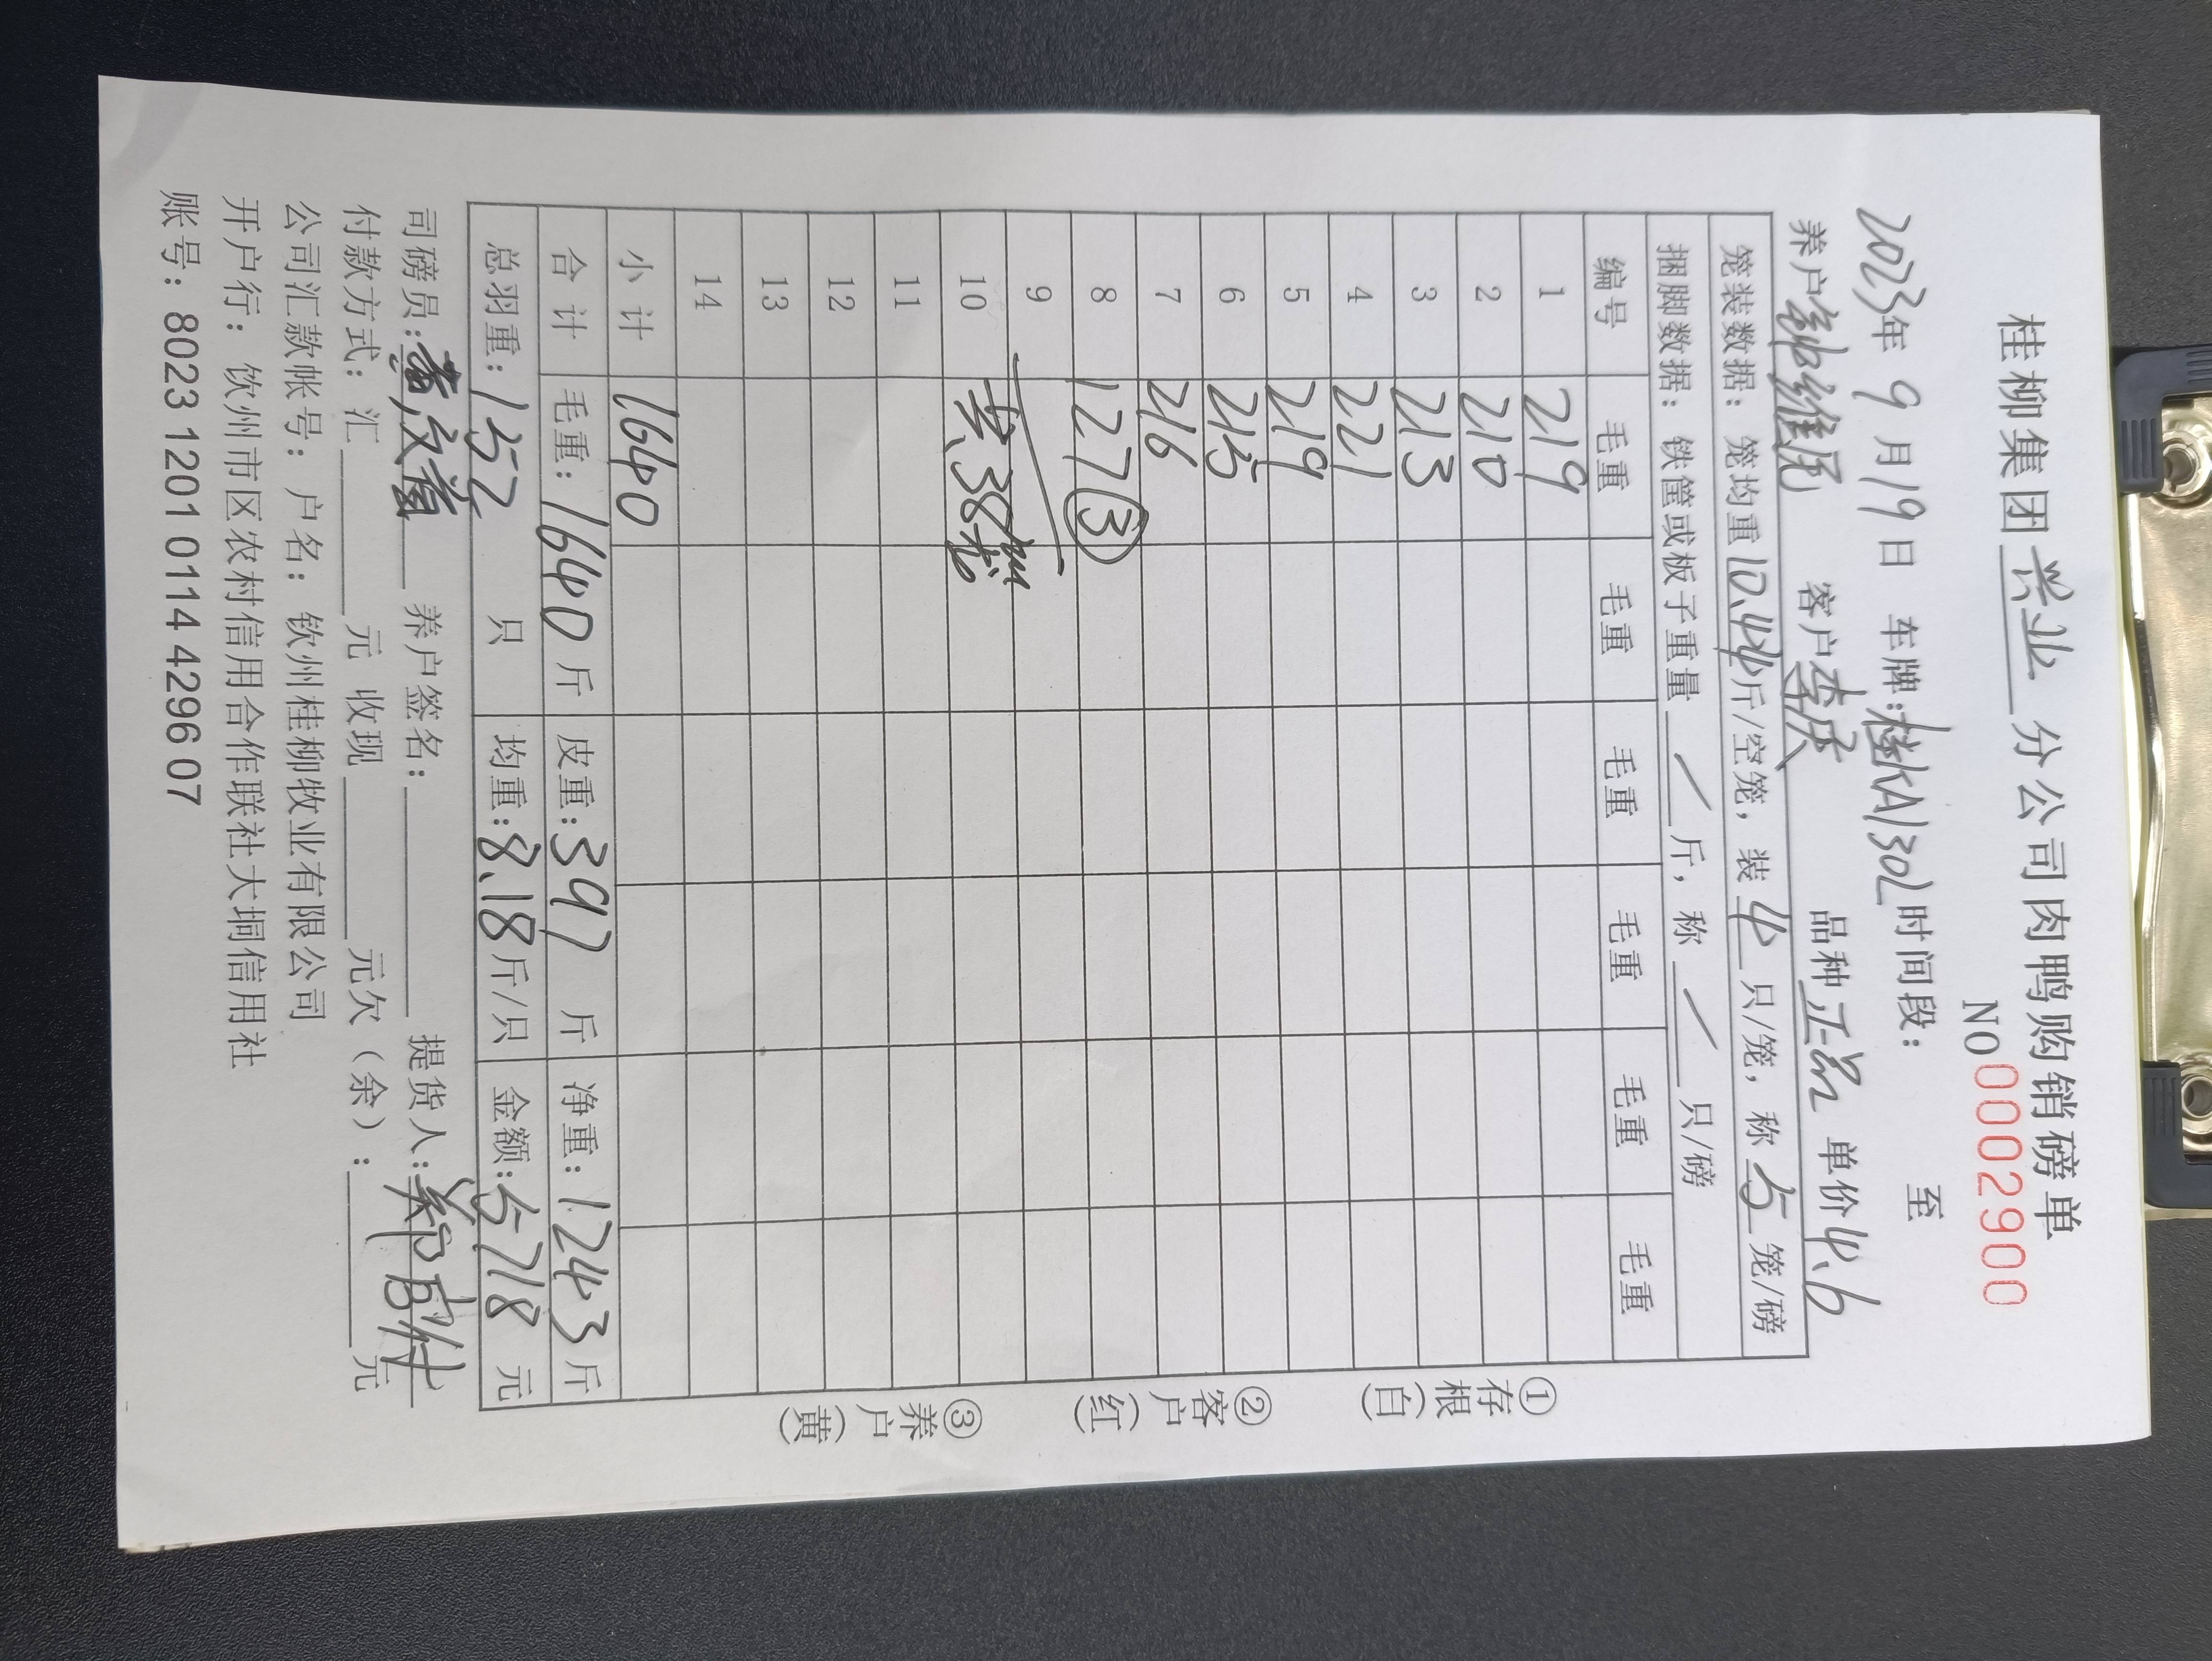 桂柳集团 兴业 分公司肉鸭购销磅单
NO 0002900
2023年 9月19日 车牌:桂KA130L 时间段: 至
养户 维 客户 李庆 品种 正品 单价 4.6
笼装数据: 笼均重 10.44 斤/空笼, 装 4 只/笼, 称 5 笼/磅
捆脚数据: 铁筐或板子重量 / 斤, 称 / 只/磅
编号 毛重 毛重 毛重 毛重 毛重 毛重
1 219
2 210
3 213
4 221
5 219
6 215
7 216
8 127 ③
9
10 共38笼
11
12
13
14
小计 1640
合计 毛重: 1640 斤 皮重: 397 斤 净重: 1243 斤
总羽重: 152 只 均重: 8.18 斤/只 金额: 5718 元
司磅员: 黄文 养户签名: 提货人: 郑
付款方式: 汇 元 收现 元欠（余）: 元
公司汇款帐号: 户名: 钦州桂柳牧业有限公司
开户行: 饮州市区农村信用合作联社大垌信用社
账号: 8023 1201 0114 4296 07
①存根(白) ②客户(红) ③养户(黄)